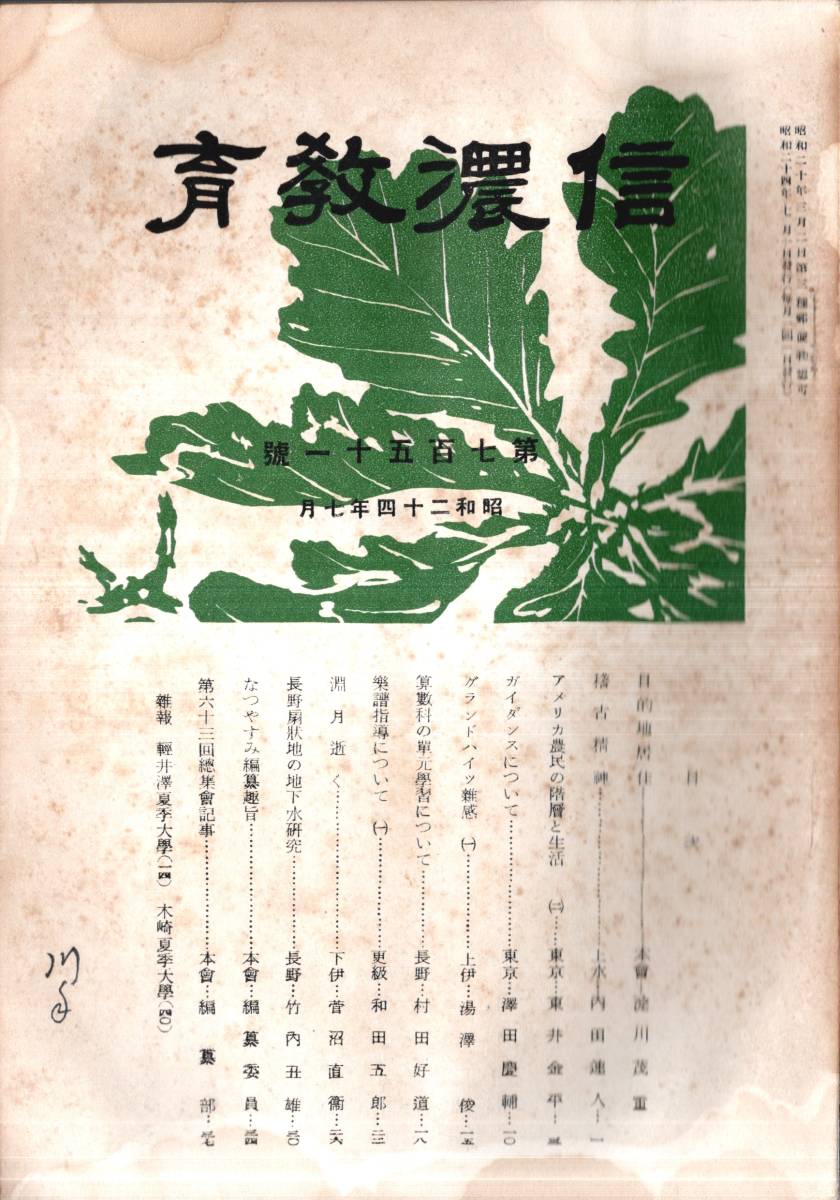 昭和二十年三月二日第三種郵便物認可
昭和二十四年七月一日發行(每月一回一日發行)
信濃教育
第七百五十一號
昭和二十四年七月
目次
目的地居住――本會…淀川茂重
稽古精神…上水…內田蓮人…一
アメリカ農民の階層と生活 (二)…東京…東井金平…三
ガイダンスについて…東京…澤田慶輔…一〇
グランドハイツ雜感 (一)…上伊…湯澤俊…一五
算數科の單元學習について…長野…村田好道…一八
樂譜指導について (一)…更級…和田五郎…二三
淵月逝く…下伊…菅沼直衞…二六
長野扇狀地の地下水硏究…長野…竹內丑雄…三〇
なつやすみ編纂趣旨…本會…編纂委員…三四
第六十三回總集會記事…本會…編纂部…三七
雜報 輕井澤夏季大學(一四) 木崎夏季大學(四〇)